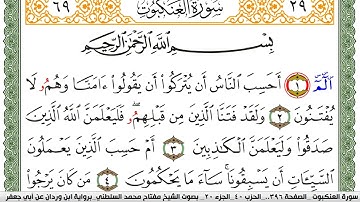 ٦٩ سُورَةُ الْعَنكَبُوتِ ٢٩
بِسْمِ اللَّهِ الرَّحْمَٰنِ الرَّحِيمِ
الٓمٓ ١ أَحَسِبَ النَّاسُ أَن يُتْرَكُوا أَن يَقُولُوا ءَامَنَّا وَهُمُ لَا
يُفْتَنُونَ ٢ وَلَقَدْ فَتَنَّا الَّذِينَ مِن قَبْلِهِمُ فَلَيَعْلَمَنَّ اللَّهُ الَّذِينَ
صَدَقُوا وَلَيَعْلَمَنَّ الْكَاذِبِينَ ٣ أَمْ حَسِبَ الَّذِينَ يَعْمَلُونَ
السَّيِّـَٔاتِ أَن يَسْبِقُونَا سَآءَ مَا يَحْكُمُونَ ٤ مَن كَانَ يَرْجُوا
سورة العنكبوت - الصفحة ٣٩٦ - الحزب ٤٠ - الجزء ٢٠ - بصوت الشيخ مفتاح محمد السلطني برواية ابن وردان عن أبي جعفر